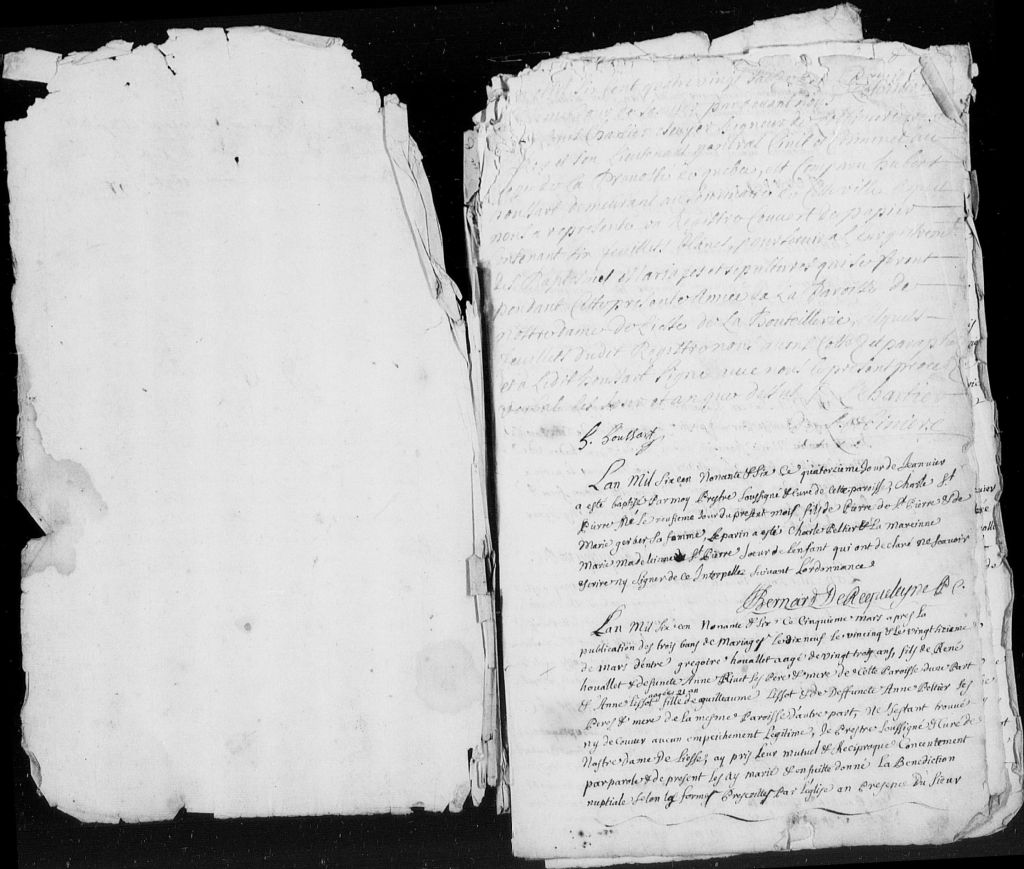 cent quatre vingt
pardevant nous
Chartier Escuyer Seigneur de Lotbiniere
et son Lieutenant general Civil et Criminel au
siege de la Prevosté de quebec, est Comparu hubert
houssart demeurant
nous a representé un Registre Couvert de papier
Contenant six feuillets blancs pour servir a l'enregistrement
des Baptesmes Mariages et sepultures qui se feront
pendant Cette presente Année en La Paroisse de
Nostre dame de Liesse de La Bouteillerie, lesquels
feuillets dudit Registre nous avons Cottez et paraphez
et a Ledit houssart signé avec nous le present procez
verbal les jour et an que dessus R Chartier
de Lotbiniere
h. houssart
Lan Mil six cen Nonante & six Ce quatorcieme Jour de Jeanvier
a esté baptisé Par moy Prestre soussigné & Curé de Cette paroisse, Charle St
Pierre Né le neufieme Jour du present mois fils de Pierre de St Pierre & de
Marie gerber sa femme, Le parin a esté Charle Peltier & La mareinne
Marie madeleinne de St Pierre soeur de L'enfant qui ont declaré Ne scavoir
escrire ny signer de ce Interpellez suivant L'ordonnance
Bernard De Requeleyne P. C.
Lan Mil six cen Nonante & six Ce Cinquieme mars apres la
publication des trois bans de Mariages le dix neuf le vincinq & le vingt sixieme
de Mars d'entre gregoire houallet aagé de vingt trois ans, fils de René
houallet & de defuncte Anne Rivet ses Pere & mere de Cette Paroisse d'une Part
& Anne Lissot aagée 21 an fille de guilleaume Lissot & de Deffuncte Anne Peltier ses
Peres & mere de la mesme Paroisse d'autre part, Ne s'estant trouvé
ny decouver aucun empeichement Legitime, Je Prestre soussigné & Curé de
Nostre Dame De Liesse, ay pris Leur mutuel & Reciproque Concentement
par parole & de present les ay marié & en suitte donné La Benediction
nuptiale selon la forme Prescritte Par l'eglise en Presence Du sieur